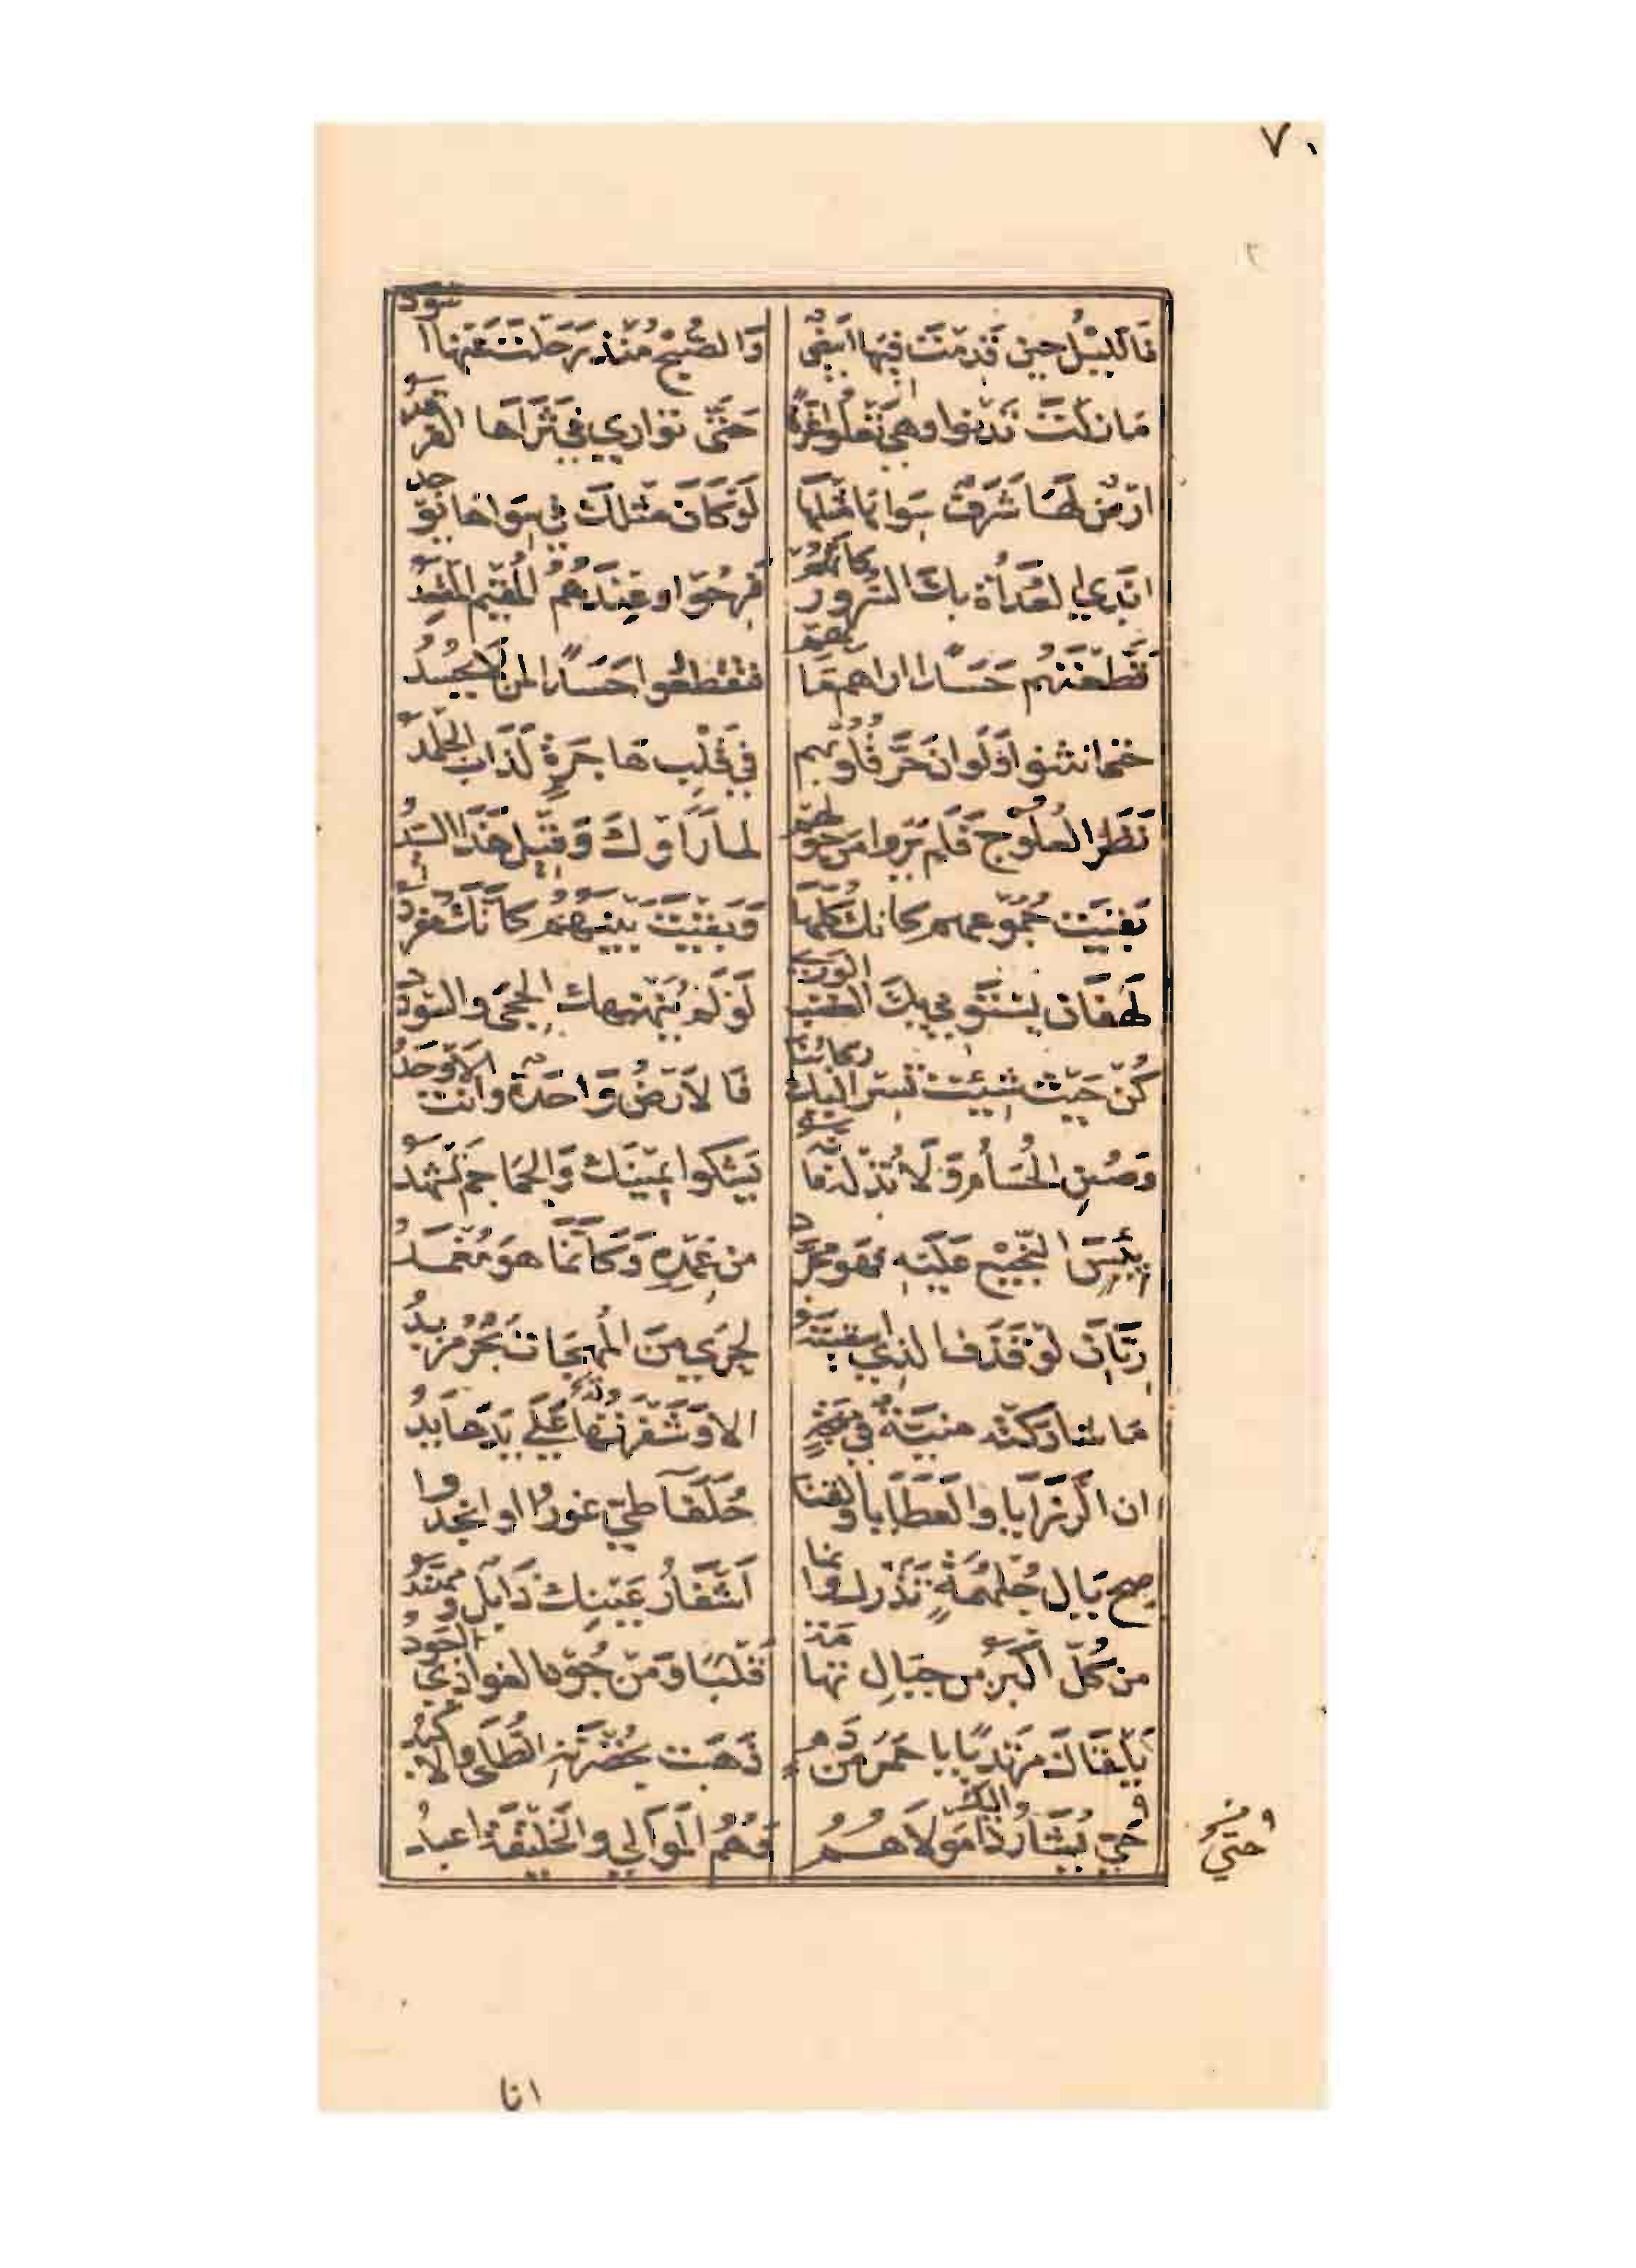 ٧٠
فالليل حين قدمت فيها ابيض والصبح منذ رحلت عنها اسود
ما زلت تدنوا وهي تعلوا عزة حتى توارى في ثراها الفرقد
ارض لها شرف سواها مثلها لو كان مثلك في سواها يوجد
ابدي العداة بك السرور كانهم فرحوا وعندهم المقيم المقعد
قطعتهم حسدا اراهم ما بهم فتقطعوا حسدا لمن لا يحسد
حتى انثنوا ولو ان حر قلوبهم في قلب هاجرة لذاب الجلمد
نظر العلوج فلم يروا من حولهم لما راوك وقيل هذا السيد
بقيت جموعهم كانك كلها وبقيت بينهم كانك مفرد
لهفان يستوبي بك الغضب الورى لو لم ينهنهك الحجى والسودد
كن حيث شئت تسر اليك ركابنا فالارض واحدة وانت الاوحد
وصن الحسام ولا تذله فانه يشكوا يمينك والجماجم تشهد
يبس النجيع عليه فهو مجرد من غمده وكانما هو مغمد
ريان لو قذف الذي اسقيته لجرى من المهجات بحر مزبد
ما شاركته منية في مهجة الا وشفرتها على يدها يد
ان الرزايا والعطايا والقنا حلفا طي غوروا او انجدوا
صح يال جلهمة تذرك وانما اشفار عينك ذابل ومهند
من كل اكبر من جبال تهامة قلبا ومن جود الغوادي اجود
يلقاك مرتديا باحمر من دم ذهبت بخضرته الطلى والاكبد
حتى يشار اليك ذا مولاهم فهم الموالي والخليقة اعبد
حتي
انا